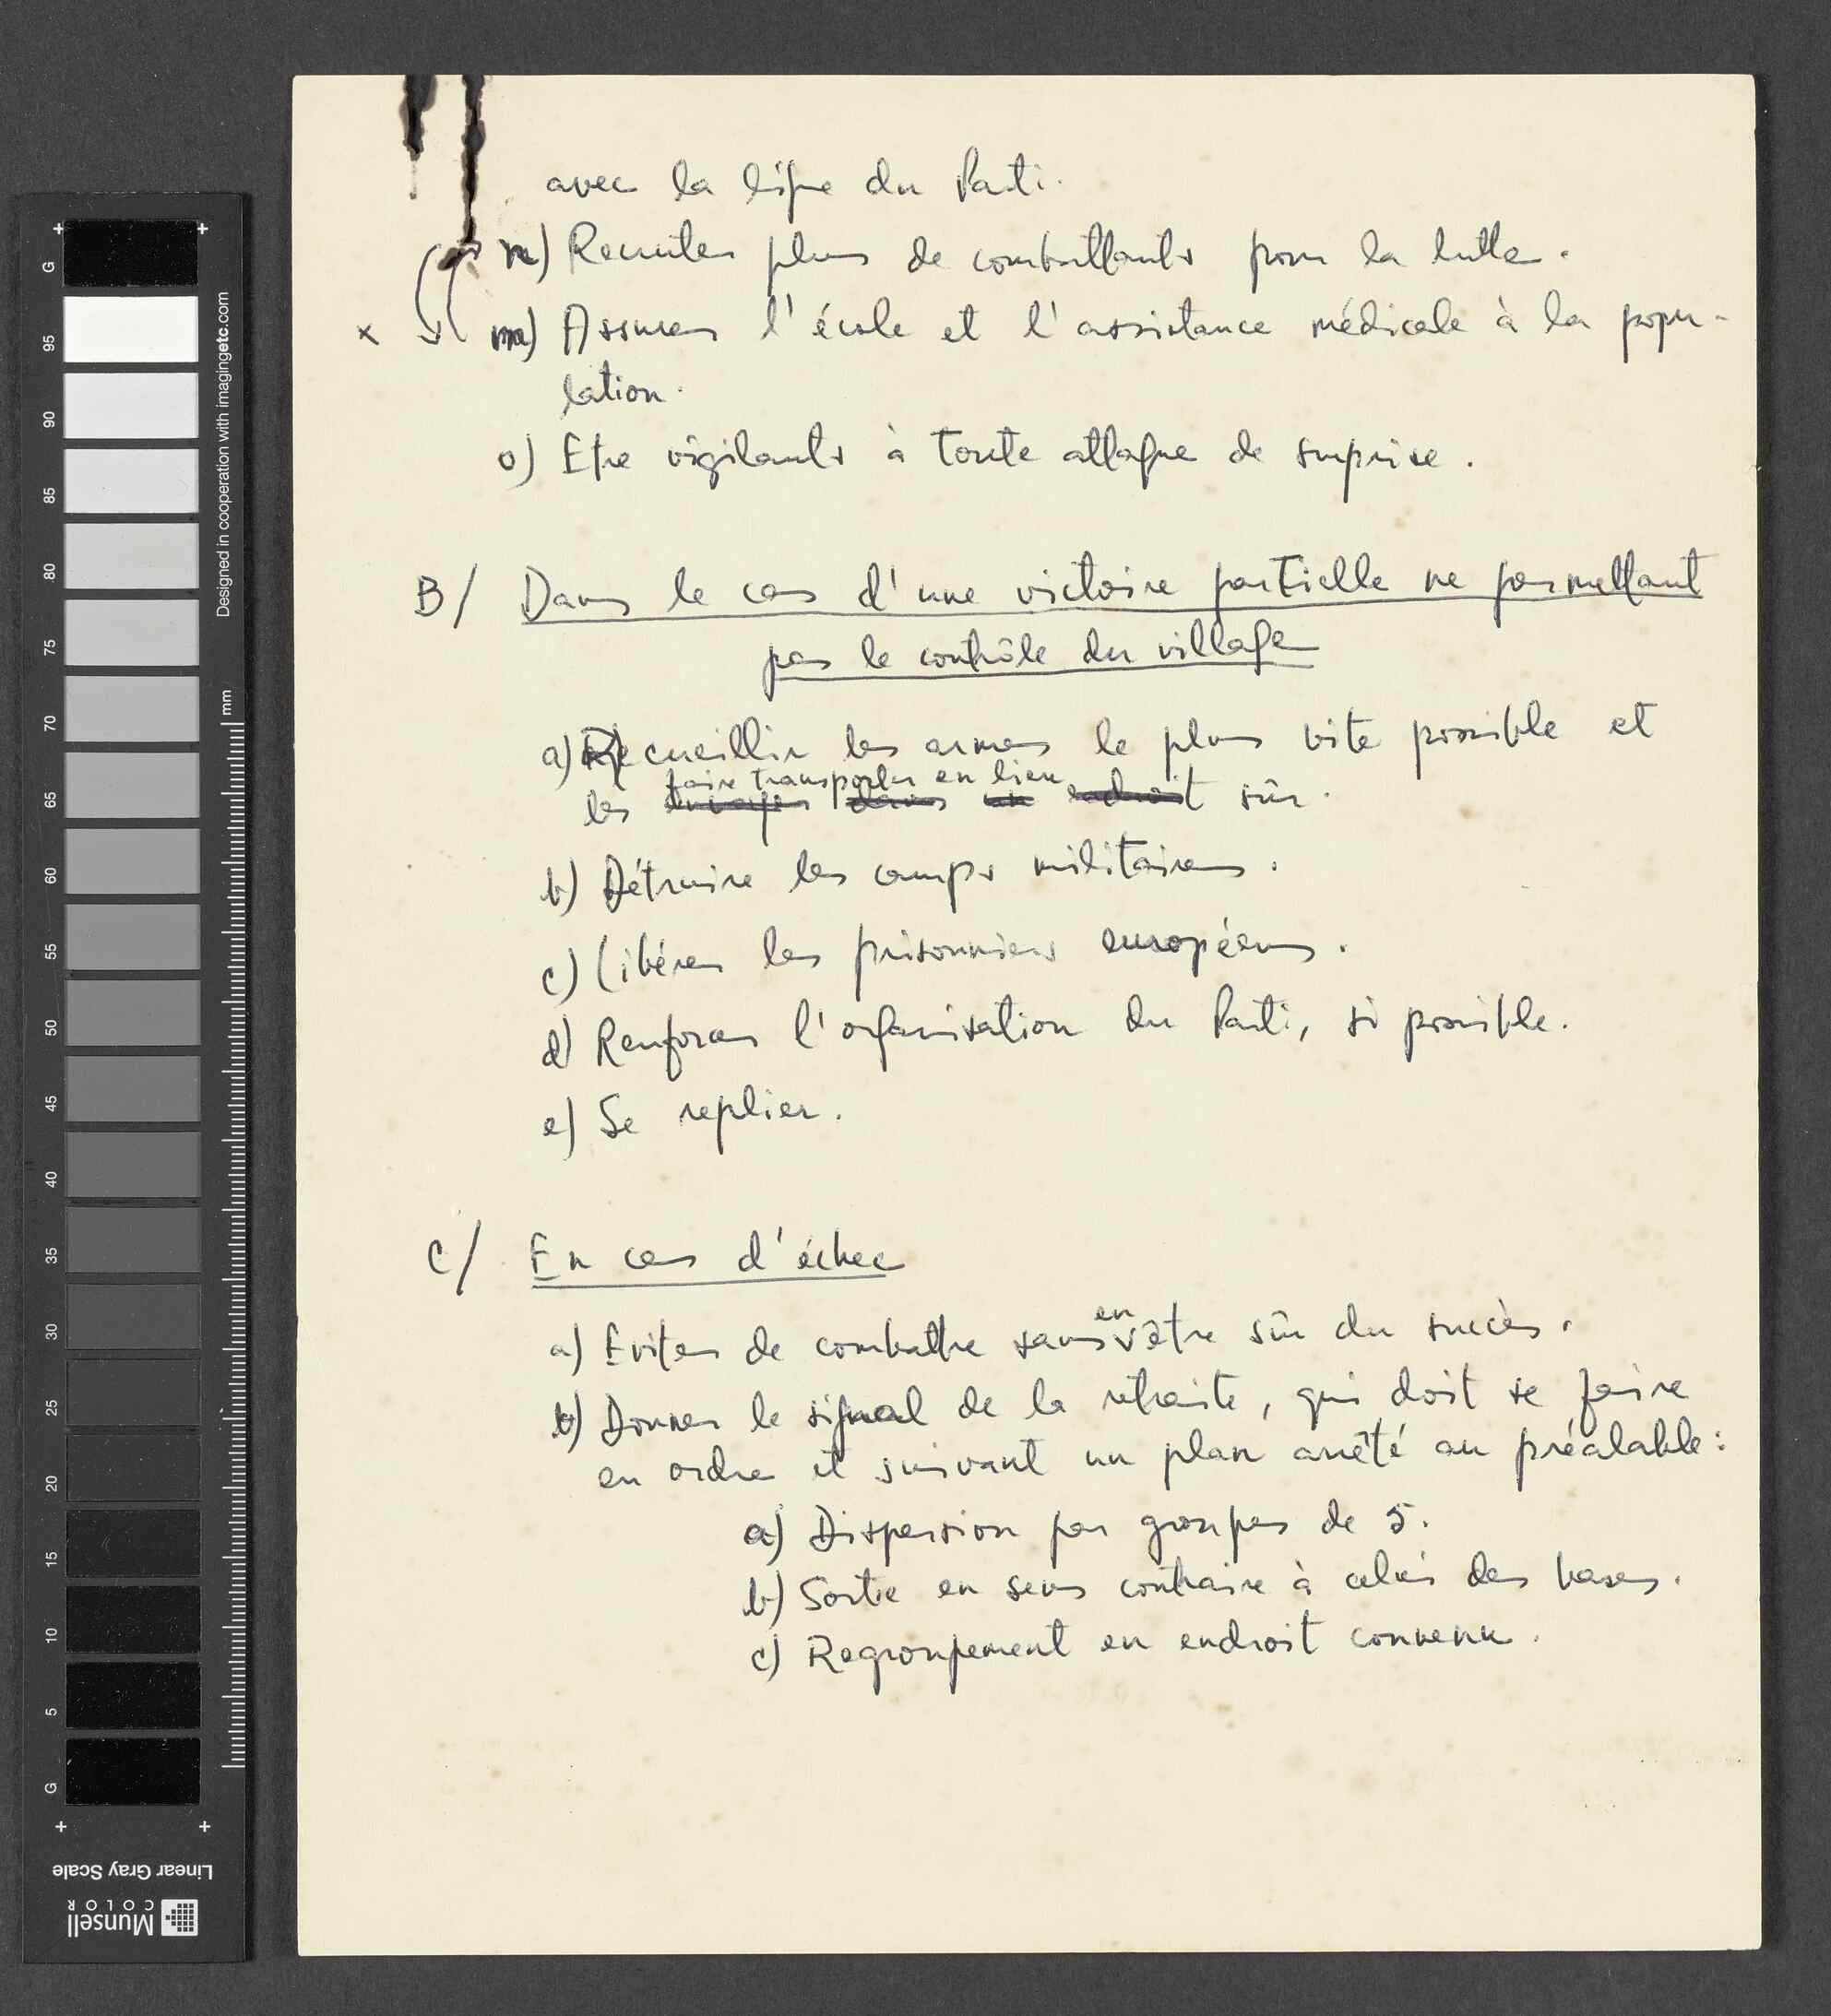 avec la ligne du Parti.
n) Recruter plus de combattants pour la lutte.
x m) Assurer l'école et l'assistance médicale à la popu-
lation.
o) Etre vigilants à toute attaque de surprise.
B/ Dans le cas d'une victoire partielle ne permettant
pas le contrôle du village
a) Recueillir les armes le plus vite possible et
faire transporter en lieu
les envoyer dans un endroit sûr.
b) Détruire les camps militaires.
c) Libérer les prisonniers européens.
d) Renforcer l'organisation du Parti, si possible.
e) Se replier.
C/ En cas d'échec
a) Eviter de combattre sans en être sûr du succès.
b) Donner le signal de la retraite, qui doit se faire
en ordre et suivant un plan arrêté au préalable:
a) Dispersion par groupes de 5.
b) Sortie en sens contraire à celui des bases.
c) Regroupement en endroit convenu.
G 95 90 85 80 75 70 65 60 55 50 45 40 35 30 25 20 15 10 5 G
Designed in cooperation with imagingetc.com
mm
Linear Gray Scale
Munsell
COLOR